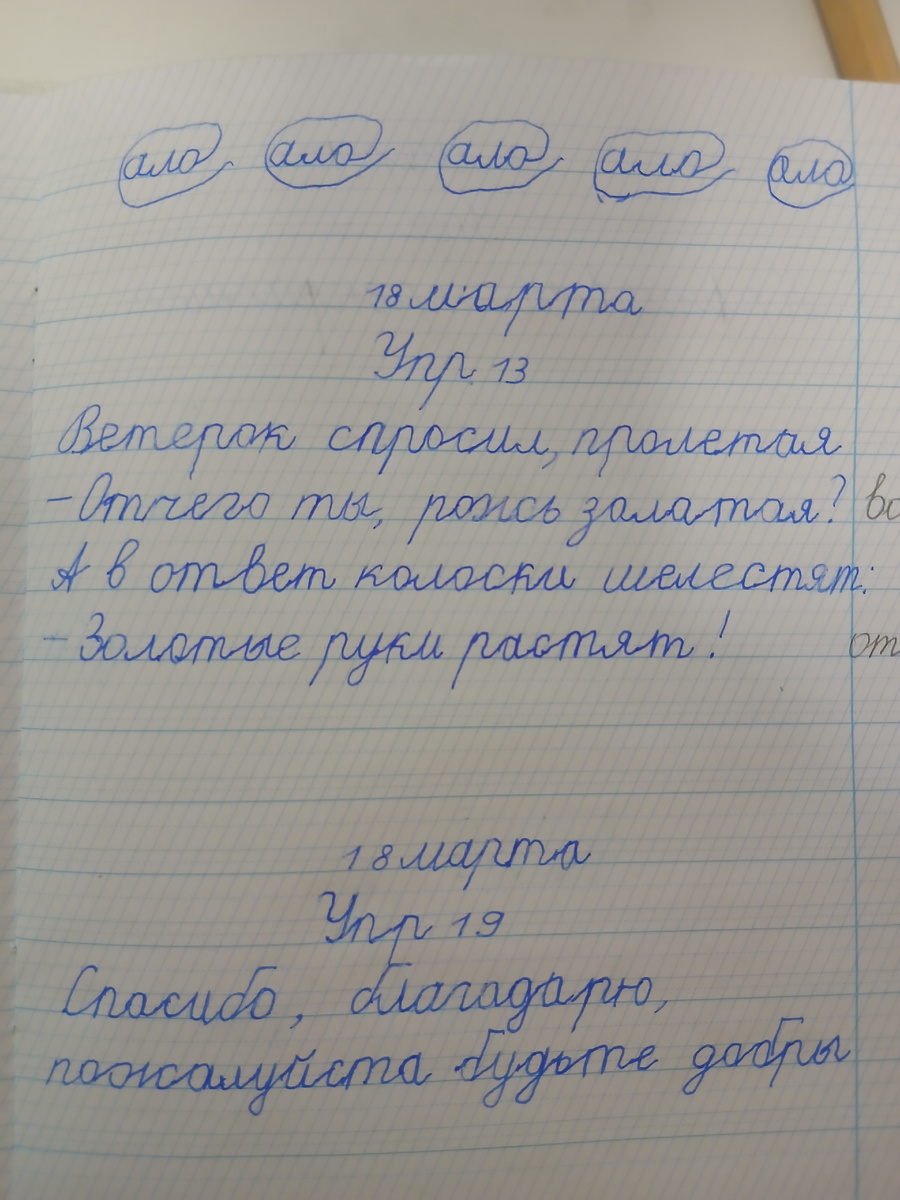 ала ала ала ала ала
18 марта
Упр. 13
Ветерок спросил, пролетая
- Отчего ты, рожь залатая? во
А в ответ колоски шелестят:
- Золотые руки растят! от
18 марта
Упр 19
Спасибо, благадарю,
пожалуйста будьте добры